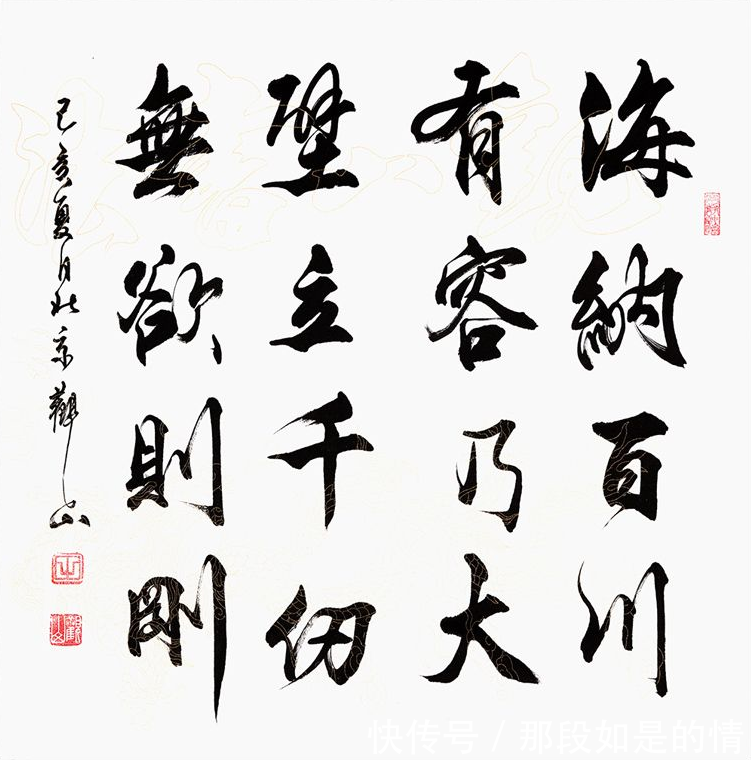 海納百川
有容乃大
壁立千仞
無欲則剛
己亥夏月北京觀山
快传号 / 那段如是的情